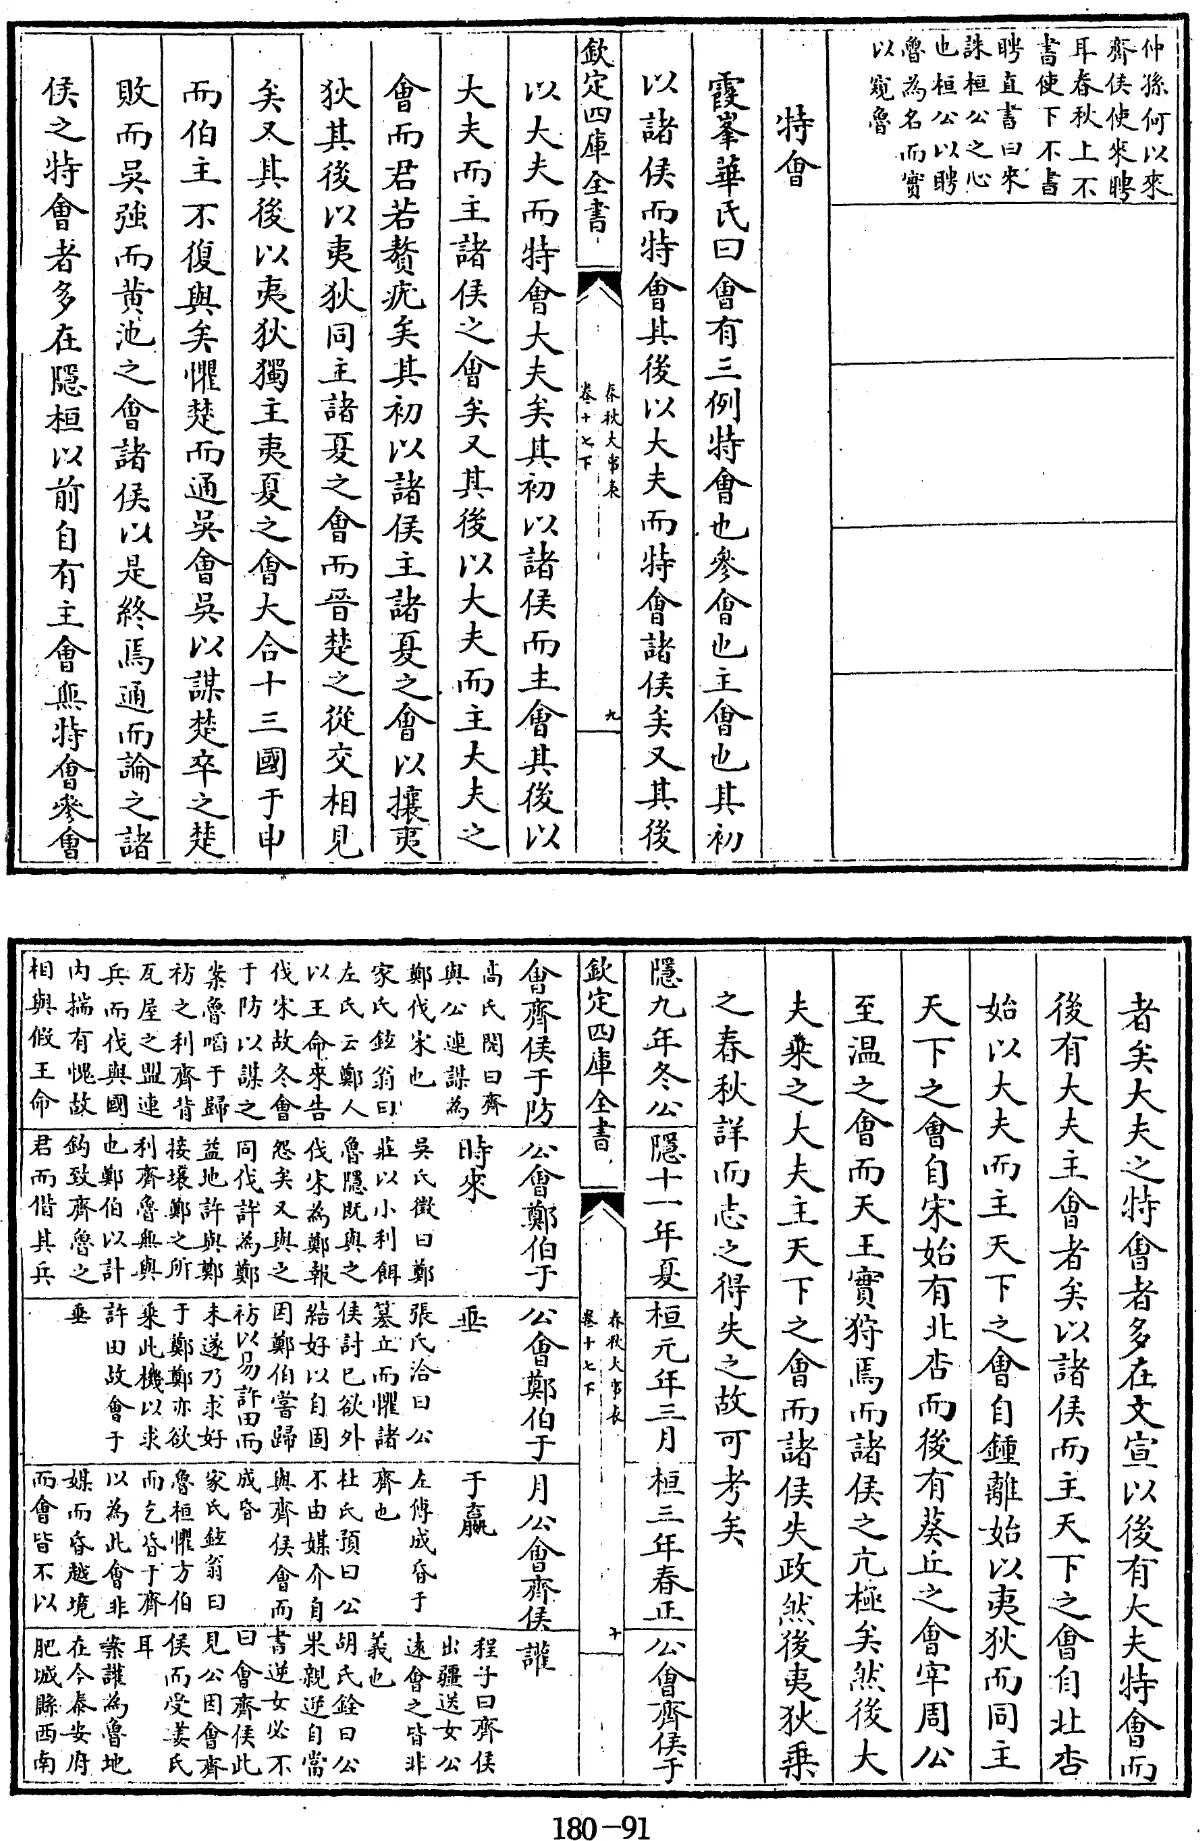 仲孫何以來
齊侯使來聘
耳春秋上不
書使下不書
聘直書曰來
誅桓公之心
也桓公以聘
魯為名而實
以窺魯
特會
霞峯華氏曰會有三例特會也參會也主會也其初
以諸侯而特會其後以大夫而特會諸侯矣又其後
欽定四庫全書
春秋大事表
卷十七下
九
以大夫而特會大夫矣其初以諸侯而主會其後以
大夫而主諸侯之會矣又其後以大夫而主大夫之
會而君若贅疣矣其初以諸侯主諸夏之會以攘夷
狄其後以夷狄同主諸夏之會而晉楚之從交相見
矣又其後以夷狄獨主夷夏之會大合十三國于申
而伯主不復與矣懼楚而通吳會吳以謀楚卒之楚
敗而吳強而黄池之會諸侯以是終焉通而論之諸
侯之特會者多在隱桓以前自有主會無特會參會
者矣大夫之特會者多在文宣以後有大夫特會而
後有大夫主會者矣以諸侯而主天下之會自北杏
始以大夫而主天下之會自鍾離始以夷狄而同主
天下之會自宋始有北杏而後有葵丘之會宰周公
至温之會而天王實狩焉而諸侯之亢極矣然後大
夫乘之大夫主天下之會而諸侯失政然後夷狄乗
之春秋詳而志之得失之故可考矣
隱九年冬公
隱十一年夏
桓元年三月
桓三年春正
公會齊侯于
欽定四庫全書
春秋大事表
卷十七下
十
會齊侯于防
高氏閌曰齊
與公連謀為
鄭伐宋也
家氏鉉翁曰
左氏云鄭人
以王命來告
伐宋故冬會
于防以謀之
案魯啗于歸
祊之利齊背
瓦屋之盟連
兵而伐與國
内揣有愧故
相與假王命
公會鄭伯于
時來
吳氏徵曰鄭
莊以小利餌
魯隱既與之
伐宋為鄭報
怨矣又與之
同伐許為鄭
益地許與鄭
接壤鄭之所
利齊魯無與
也鄭伯以計
鈎致齊魯之
君而偕其兵
公會鄭伯于
垂
張氏洽曰公
簒立而懼諸
侯討已欲外
結好以自固
因鄭伯嘗歸
祊以易許田而
未遂乃求好
于鄭鄭亦欲
乗此機以求
許田故會于
垂
月公會齊侯
于嬴
左傳成昏于
齊也
杜氏預曰公
不由媒介自
與齊侯會而
成昏
家氏鉉翁曰
魯桓懼方伯
而乞昏于齊
以為此會非
媒而昏越境
而會皆不以
讙
程子曰齊侯
出疆送女公
遠會之皆非
義也
胡氏銓曰公
果親逆自當
書逆女必不
曰會齊侯此
見公因會齊
侯而受姜氏
耳
案讙為魯地
在今泰安府
肥城縣西南
180-91